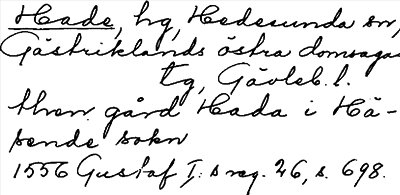 Hade, hg, Hedesunda sn,
Gästriklands östra domsagas
tg, Gävleb. l.
then gård Hada i Hä-
sende sokn
1556 Gustaf I:s reg. 26, s. 698.